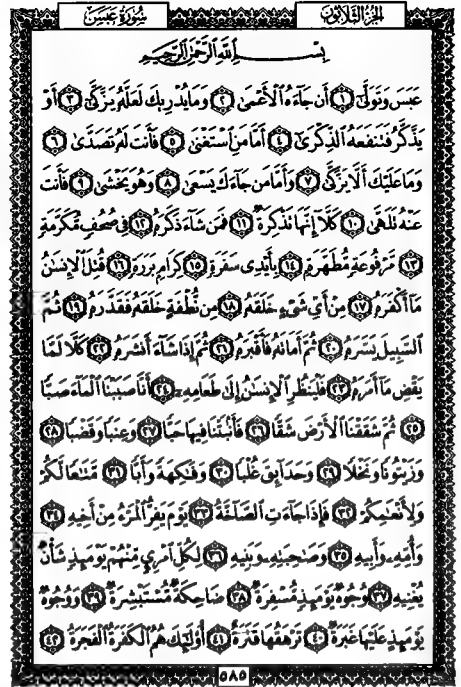 سُورَةُ عَبَسَ
الجُزْءُ الثَّلَاثُونَ
بِسْمِ اللَّهِ الرَّحْمَٰنِ الرَّحِيمِ
عَبَسَ وَتَوَلَّىٰٓ ١ أَن جَآءَهُ ٱلْأَعْمَىٰ ٢ وَمَا يُدْرِيكَ لَعَلَّهُۥ يَزَّكَّىٰٓ ٣ أَوْ
يَذَّكَّرُ فَتَنفَعَهُ ٱلذِّكْرَىٰٓ ٤ أَمَّا مَنِ ٱسْتَغْنَىٰ ٥ فَأَنتَ لَهُۥ تَصَدَّىٰ ٦
وَمَا عَلَيْكَ أَلَّا يَزَّكَّىٰ ٧ وَأَمَّا مَن جَآءَكَ يَسْعَىٰ ٨ وَهُوَ يَخْشَىٰ ٩ فَأَنتَ
عَنْهُ تَلَهَّىٰ ١٠ كَلَّآ إِنَّهَا تَذْكِرَةٌ ١١ فَمَن شَآءَ ذَكَرَهُۥ ١٢ فِى صُحُفٍ مُّكَرَّمَةٍ
١٣ مَّرْفُوعَةٍ مُّطَهَّرَةٍۭ ١٤ بِأَيْدِى سَفَرَةٍ ١٥ كِرَامٍۭ بَرَرَةٍ ١٦ قُتِلَ ٱلْإِنسَٰنُ
مَآ أَكْفَرَهُۥ ١٧ مِنْ أَىِّ شَىْءٍ خَلَقَهُۥ ١٨ مِن نُّطْفَةٍ خَلَقَهُۥ فَقَدَّرَهُۥ ١٩ ثُمَّ
ٱلسَّبِيلَ يَسَّرَهُۥ ٢٠ ثُمَّ أَمَاتَهُۥ فَأَقْبَرَهُۥ ٢١ ثُمَّ إِذَا شَآءَ أَنشَرَهُۥ ٢٢ كَلَّا لَمَّا
يَقْضِ مَآ أَمَرَهُۥ ٢٣ فَلْيَنظُرِ ٱلْإِنسَٰنُ إِلَىٰ طَعَامِهِۦٓ ٢٤ أَنَّا صَبَبْنَا ٱلْمَآءَ صَبًّا
٢٥ ثُمَّ شَقَقْنَا ٱلْأَرْضَ شَقًّا ٢٦ فَأَنۢبَتْنَا فِيهَا حَبًّا ٢٧ وَعِنَبًا وَقَضْبًا ٢٨
وَزَيْتُونًا وَنَخْلًا ٢٩ وَحَدَآئِقَ غُلْبًا ٣٠ وَفَٰكِهَةً وَأَبًّا ٣١ مَّتَٰعًا لَّكُمْ
وَلِأَنْعَٰمِكُمْ ٣٢ فَإِذَا جَآءَتِ ٱلصَّآخَّةُ ٣٣ يَوْمَ يَفِرُّ ٱلْمَرْءُ مِنْ أَخِيهِ ٣٤
وَأُمِّهِۦ وَأَبِيهِ ٣٥ وَصَٰحِبَتِهِۦ وَبَنِيهِ ٣٦ لِكُلِّ ٱمْرِئٍ مِّنْهُمْ يَوْمَئِذٍ شَأْنٌ
يُغْنِيهِ ٣٧ وُجُوهٌ يَوْمَئِذٍ مُّسْفِرَةٌ ٣٨ ضَاحِكَةٌ مُّسْتَبْشِرَةٌ ٣٩ وَوُجُوهٌ
يَوْمَئِذٍ عَلَيْهَا غَبَرَةٌ ٤٠ تَرْهَقُهَا قَتَرَةٌ ٤١ أُو۟لَٰٓئِكَ هُمُ ٱلْكَفَرَةُ ٱلْفَجَرَةُ ٤٢
٥٨٥